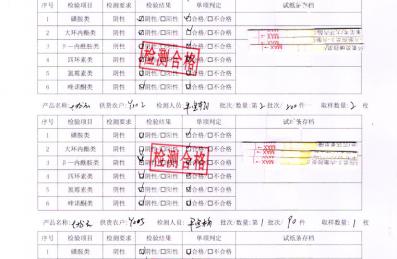 序号 检验项目 检测要求 检验结果 单项判定 试纸条存档
1 磺胺类 阴性 ☑阴性/□阳性 ☑合格/□不合格
2 大环内酯类 阴性 ☑阴性/□阳性 ☑合格/□不合格
3 β-内酰胺类 阴性 阴性/□阳性 合格/□不合格
4 四环素类 阴性 阴性/□阳性 合格/□不合格
5 氯霉素类 阴性 阴性/□阳性 合格/□不合格
6 喹诺酮类 阴性 阴性/□阳性 合格/□不合格
检测合格
产品名称: 供货农户: Y002 检测人员: 批次/数量: 第2批次/200件 取样数量: 2 枚
序号 检验项目 检测要求 检验结果 单项判定 试纸条存档
1 磺胺类 阴性 阴性/□阳性 合格/□不合格
2 大环内酯类 阴性 阴性/□阳性 合格/□不合格
3 β-内酰胺类 阴性 阴性/□阳性 合格/□不合格
4 四环素类 阴性 阴性/□阳性 合格/□不合格
5 氯霉素类 阴性 阴性/□阳性 合格/□不合格
6 喹诺酮类 阴性 阴性/□阳性 合格/□不合格
检测合格
产品名称: 供货农户: Y003 检测人员: 批次/数量: 第1批次/90件 取样数量: 1 枚
序号 检验项目 检测要求 检验结果 单项判定 试纸条存档
1 磺胺类 阴性 阴性/□阳性 合格/□不合格